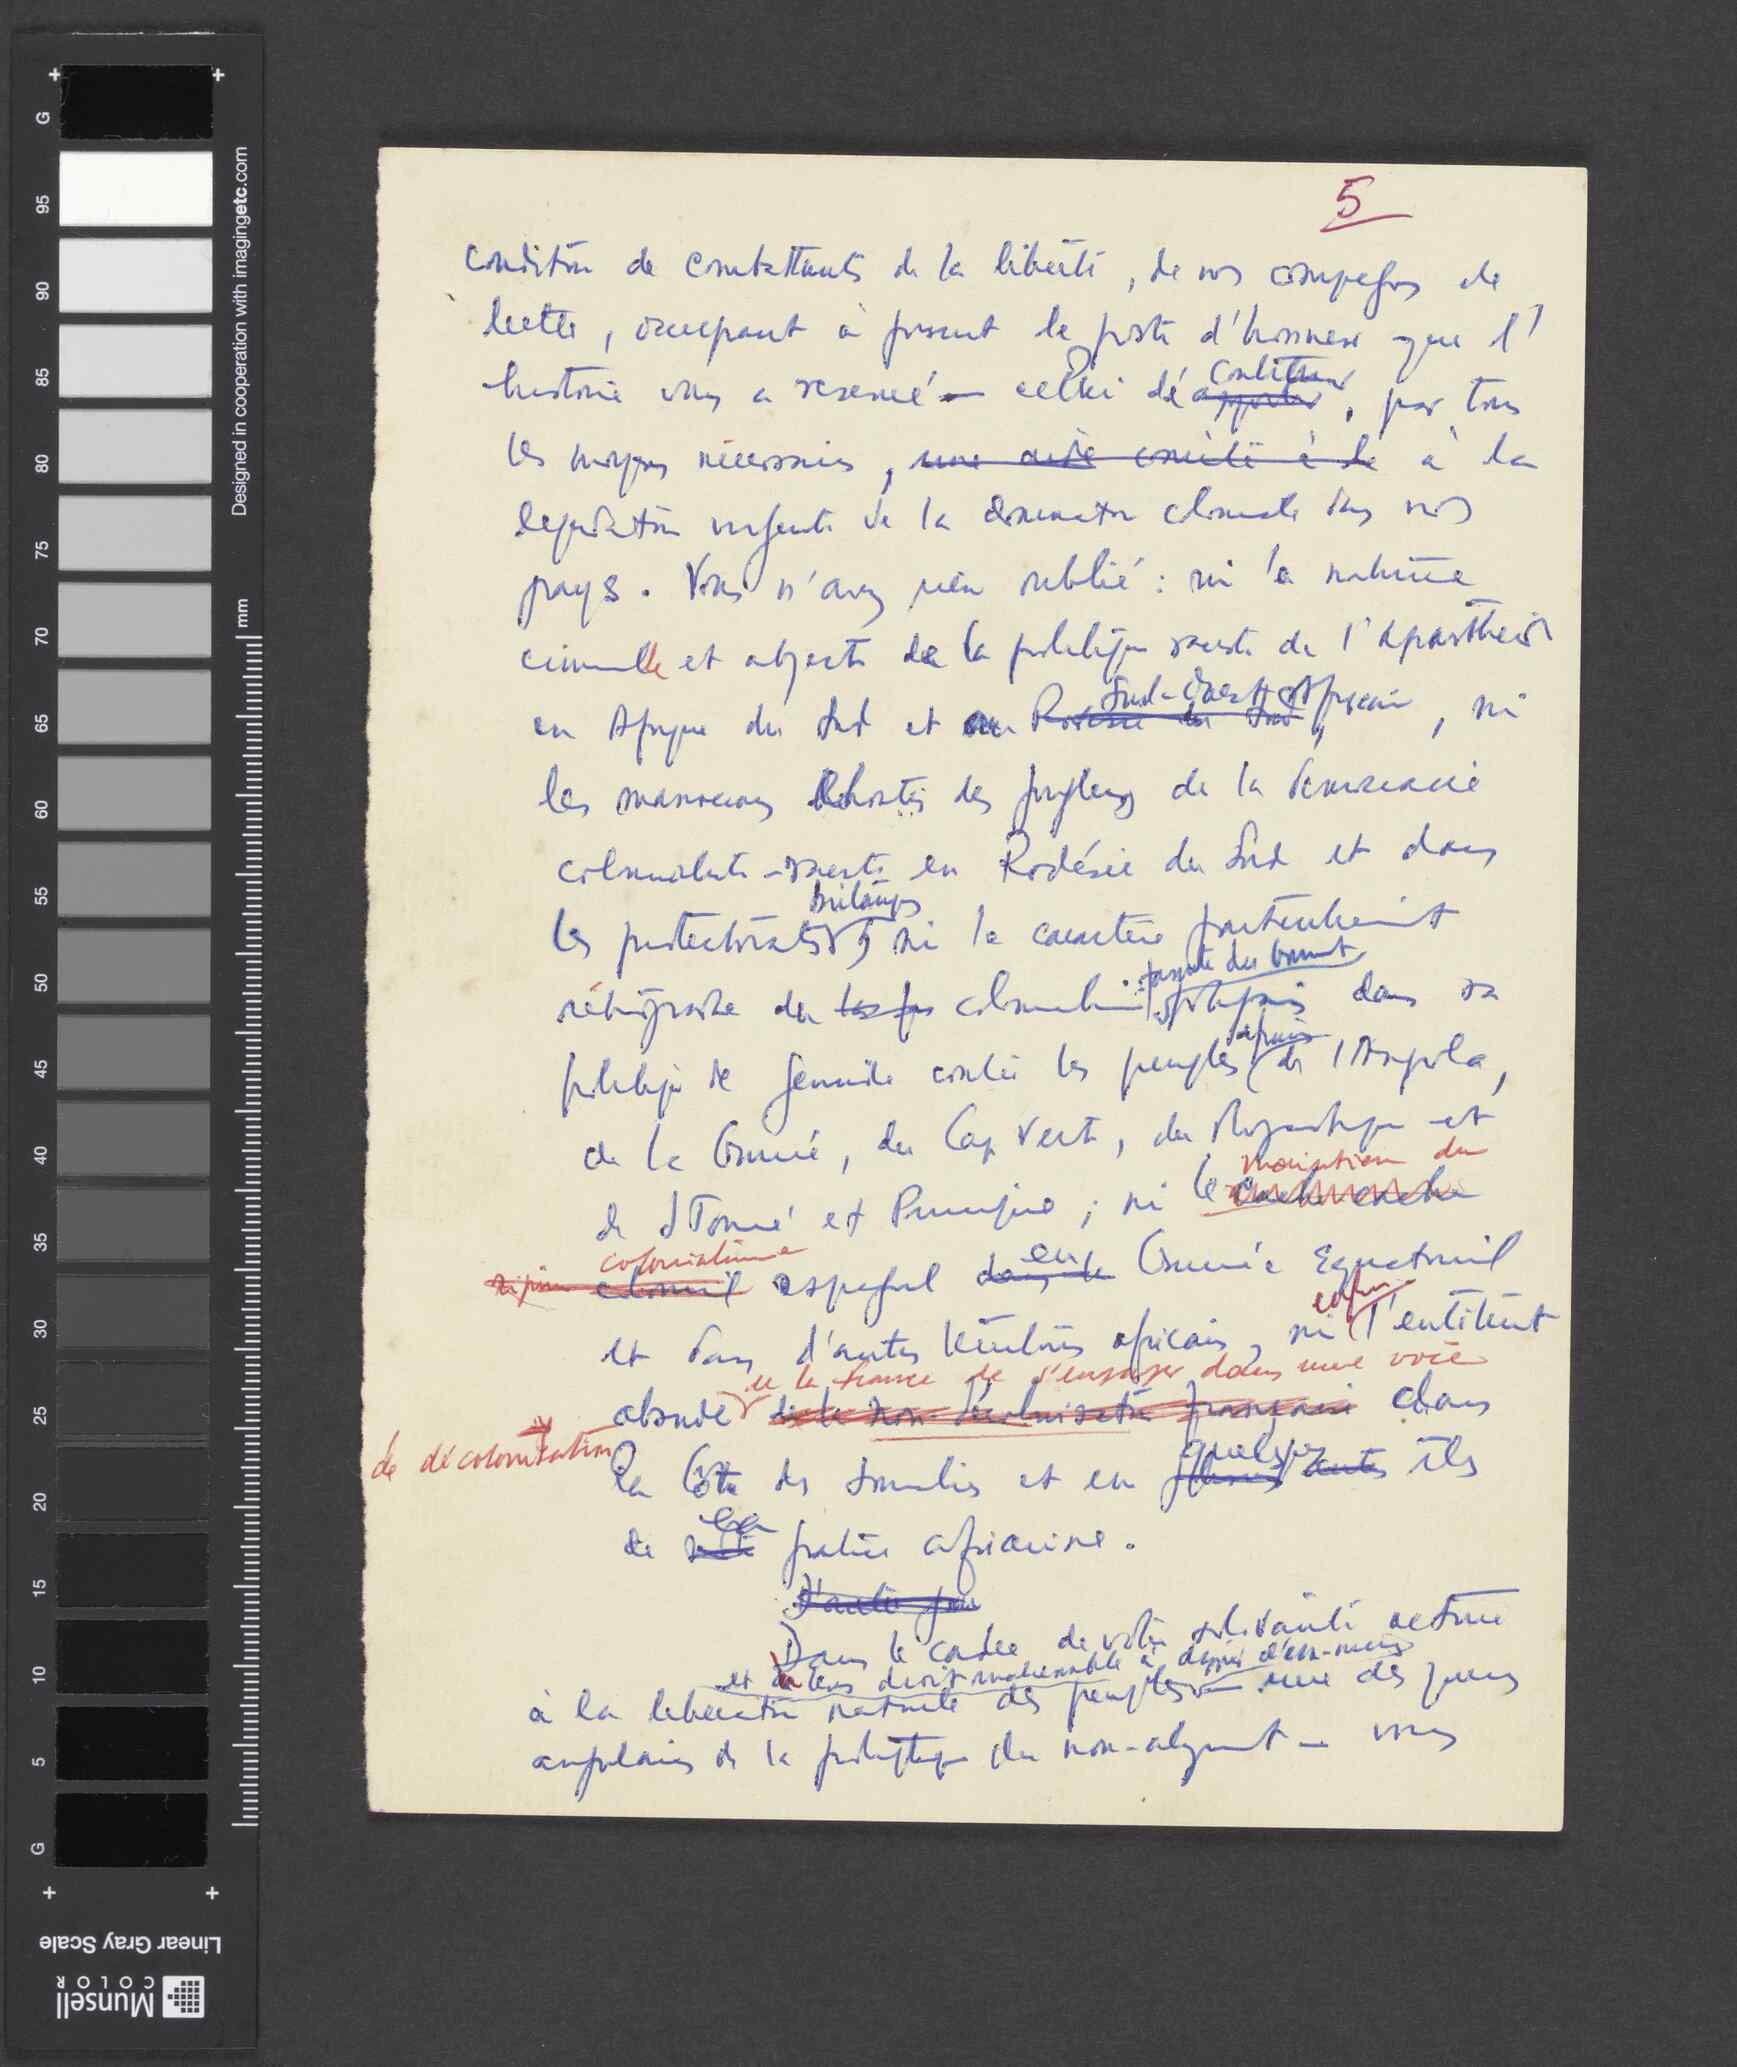 5
condition de combattants de la liberté, de nos compagnons de
lutte, occupant à présent le poste d'honneur que l'
histoire vous a réservé — celui de contribuer, par tous
les moyens nécessaires, une aide à la à la
liquidation urgente de la domination coloniale dans nos
pays. Vous n'avez rien oublié : ni la nature
criminelle et abjecte de la politique raciste de l'apartheid
en Afrique du Sud et Rodésie du Sud Sud-Ouest Africain, ni
les manoeuvres des jongleurs de la démocratie
colonialiste-raciste en Rodésie du Sud et dans
les protectorats britaniques, ni le caractère particulièrement
rétrograde du colonialisme portugais dans sa
politique de génocide contre les peuples africains de l'Angola,
de la Guinée, du Cap Vert, du Mozambique et
de S Tomé et Principe ; ni le maintien du
colonialisme colonial espagnol dans la en Guinée Equatorial
et dans d'autres territoires africains, ni enfin l'entêtement
absurde de la France de s'engager dans une voie
de la non-décolonisation française dans
de décolonisation
la Côte des Somalies et en quelques autres îles
de la patrie africaine.
D'autre part
Dans le cadre de votre solidarité active
et à leur droit inaliénable à disposer d'eux-mêmes
à la libération nationale des peuples — une des pierres
angulaires de la politique du non-alignement — vous
Designed in cooperation with imagingetc.com
mm
G
95
90
85
80
75
70
65
60
55
50
45
40
35
30
25
20
15
10
5
G
Linear Gray Scale
Munsell
COLOR